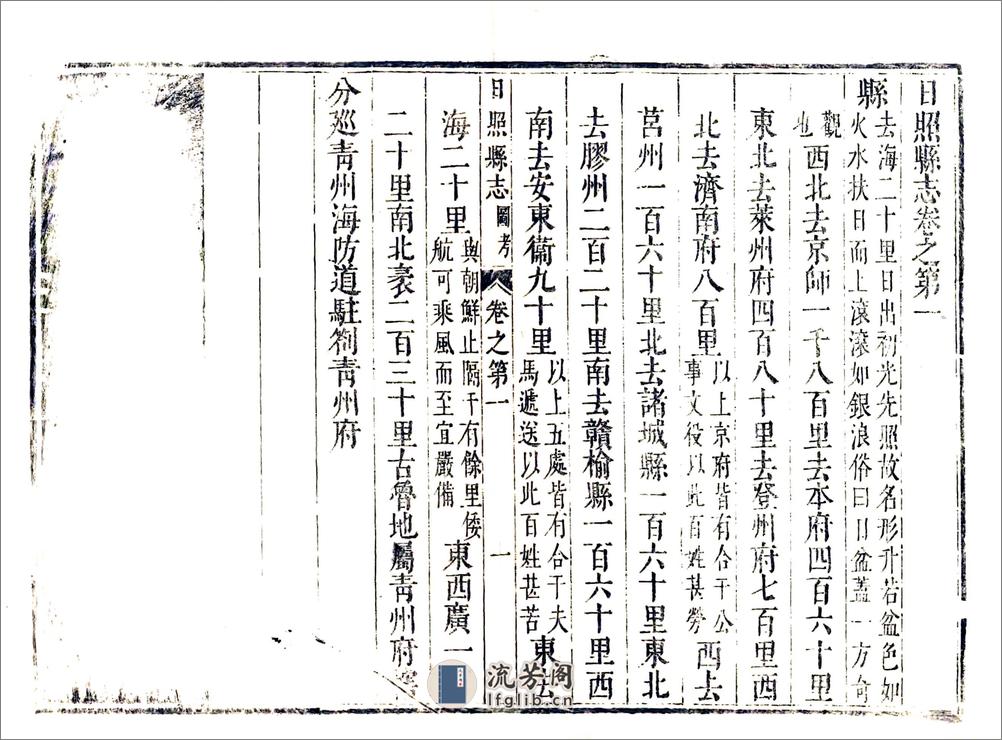 日照縣志卷之第一
縣去海二十里日出初光先照故名形升若盆色如火水扶日而上滾滾如銀浪俗曰日盆蓋一方奇
觀也西北去京師一千八百里去本府四百六十里
東北去萊州府四百八十里去登州府七百里西
北去濟南府八百里以上京府皆有合干公事文役以此百姓甚勞西去
莒州一百六十里北去諸城縣一百六十里東北
去膠州二百二十里南去贛榆縣一百六十里西
南去安東衞九十里以上五處皆有合干夫馬遞送以此百姓甚苦東去
日照縣志 圖考 卷之第一 一
海二十里與朝鮮止隔千有餘里倭航可乘風而至宜嚴備東西廣一
二十里南北袤二百三十里古魯地屬青州府
分廵青州海防道駐劄青州府
流芳阁
lfglib.cn